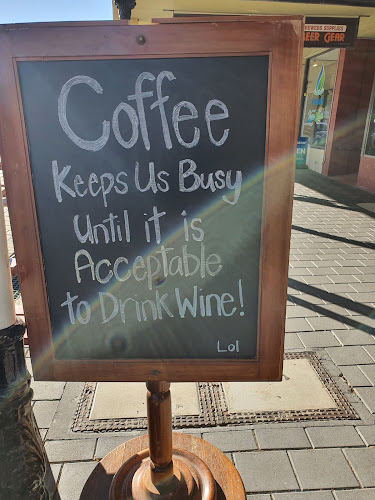 BREWERS SUPPLIES
BEER GEAR
Coffee
Keeps Us Busy
Until it is
Acceptable
to Drink Wine!
Lol